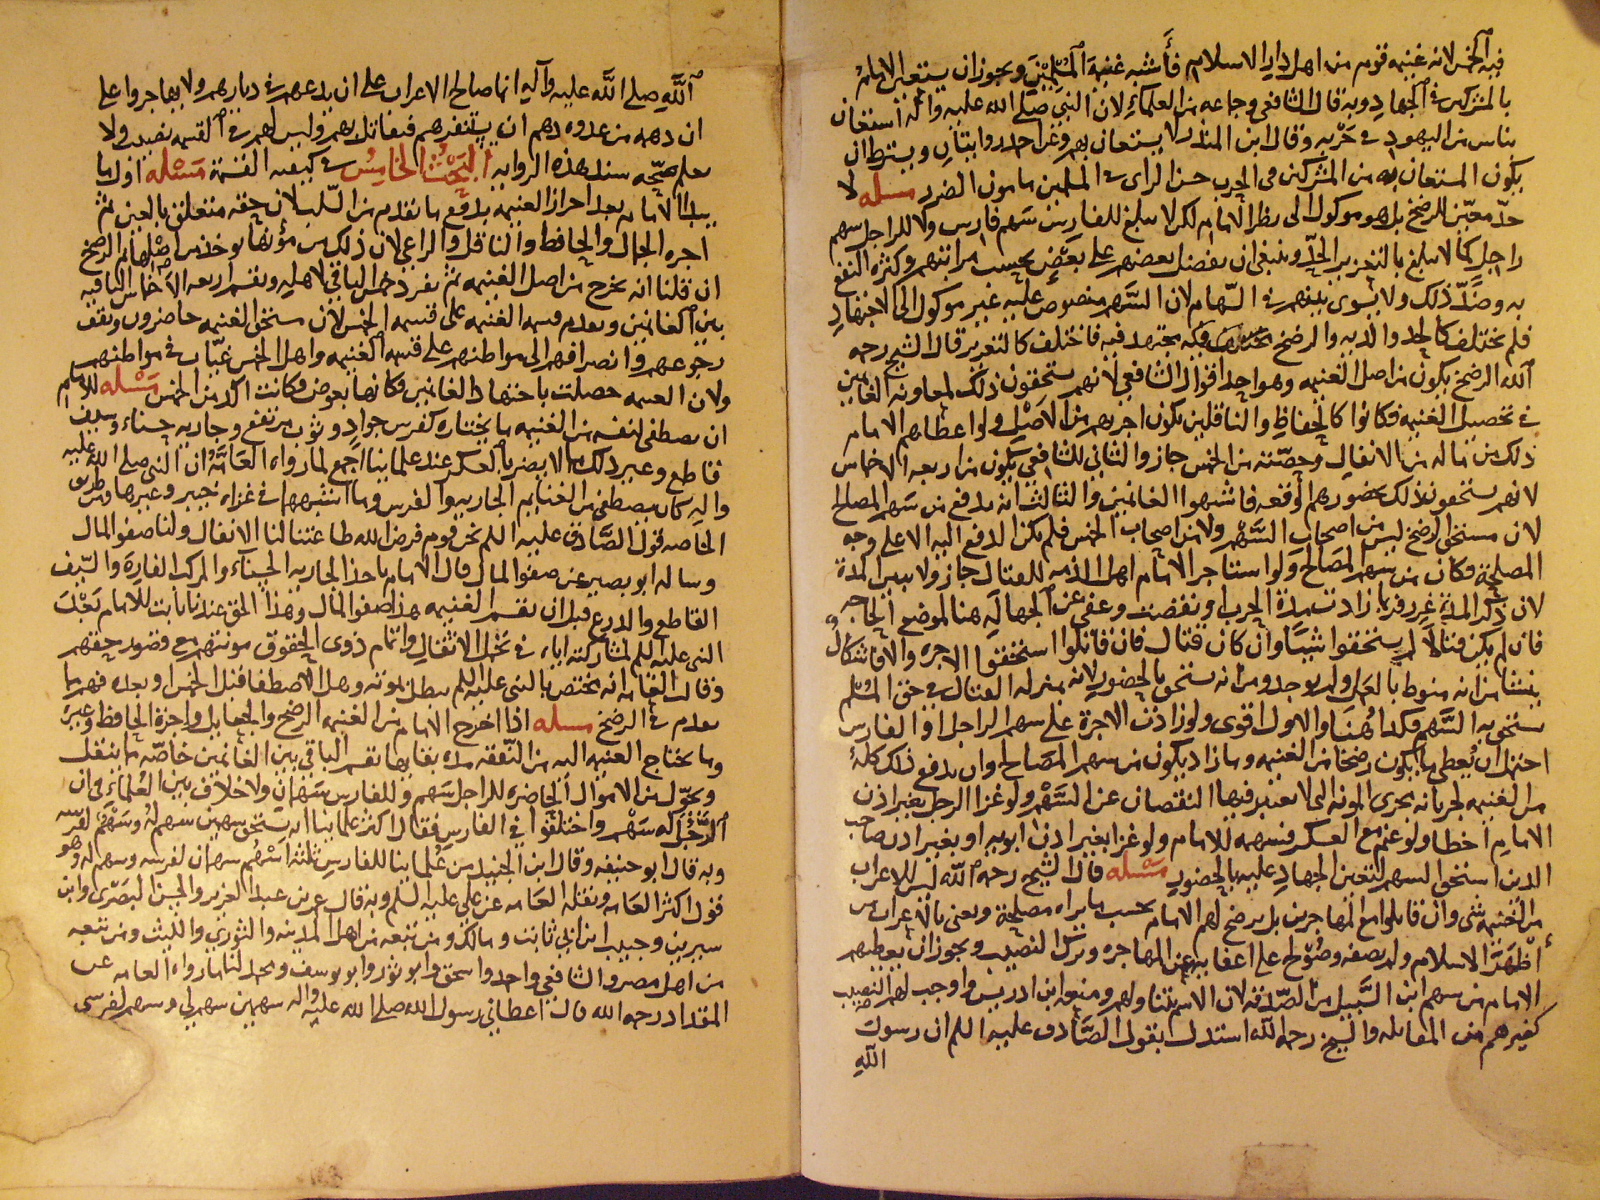 فيه الخمس لانه غنيمه قوم من اهل دار الاسلام فأشبه غنيمة المسلمين ويجوز ان يستعين الامام
بالمشركين في الجهاد وبه قال الشافعي وجماعه من العلماء لان النبي صلى الله عليه وآله استعان
بناس من اليهود في حربه وقال ابن المنذر لا يستعان بهم وعن احمد روايتان ويشترط ان
يكون المستعان به من المشركين في الحرب حسن الراى في المسلمين مامون الضرر مسله لا
حدّ معيّن للرضخ بل هو موكول الى نظر الامام لكن لا يبلغ للفارس سهم فارس ولا للراجل سهم
راجل كما لا يبلغ بالتعزير الحدّ وينبغى ان يفضل بعضهم على بعض بحسب مراتبهم وكثرة النفع
به وضدّ ذلك ولا يسوى بينهم في السهام لان السهم منصوص عليه غير موكول الى الاجتهاد
فلم يختلف كالحد والديه والرضخ مجتهد فيه فاختلف كالتعزير قال الشيخ رحمه
الله الرضخ يكون من اصل الغنيمه وهو احد اقوال الشافعي لانهم يستحقون ذلك لمعاونه الغانمين
في تحصيل الغنيمه فكانوا كالحفاظ والناقلين يكون اجرهم من الاصل ولو اعطاهم الامام
ذلك من ماله من الانفال وحصّته من الخمس جاز والثاني للشافعي يكون من اربعه الاخماس
لانهم يستحقون ذلك بحضورهم الوقعه فاشبهوا الغانمين والثالث انه يدفع من سهم المصالح
لان مستحق الرضخ ليس من اصحاب السّهم ولا من اصحاب الخمس فلم يكن الدفع اليه الا على وجه
المصلحة فكان من سهم المصالح ولو استاجر الامام اهل الذمه للقتال جاز ولا يبين المدة
لان ذكر المدة غرر فربما زادت مدة الحرب او نقصت وعفي عن الجهاله هنا لموضع الحاجه
فان لم يكن قتالا لم يستحقوا شيئا وان كان قتال فان قاتلوا استحقوا الاجره والا فاشكال
ينشا من انه منوط بالعمل ولم يوجد ومن انه يستحق بالحضور لانه بمنزله القتال في حق المسلم
يستحق به السّهم فكذا هُنا والاول اقوى ولو زادت الاجرة على سهم الراجل او الفارس
احتمل ان يُعطى ما يكون رضخا من الغنيمه وما زاد يكون من سهم المصالح وان يدفع ذلك كله
من الغنيمه لجريانه مجرى المونه التى لا يعتبر فيها النقصان عن السّهم ولو غزا الرجل بغير اذن
الامام اخطا ولو غنم مع العسكر فسهمه للامام ولو غزا بغير اذن ابويه او بغير اذن صاحب
الدين استحق السهم لتعين الجهاد عليه بالحضور مسله قال الشيخ رحمه الله ليس للاعراب
من الغنيمه شئ وان قاتلوا مع المهاجرين بل يرضخ لهم الامام بحسب ما يراه مصلحة ونعنى بالاعراب من
أظهر الاسلام ولم يصفه وصُولح على اعفائهم عن المهاجره وترك النصيب ويجوز ان يعطيهم
الامام من سهم ابن السّبيل من الصّدقه لان الاسم يتناولهم ومنع ابن ادريس واوجب لهم النصيب
كغيرهم من المقاتله والشيخ رحمه الله استدل بقول الصّادق عليه السلم ان رسول
الله
الله صلى الله عليه وآله انما صالح الاعراب على ان يدعهم في ديارهم ولا يهاجروا على
ان دهمه من عدوه دهم ان يستنفرهم فيقاتل بهم وليس لهم في القسمه نصيب ولا
نعلم صحّه سند هذه الروايه البَحْثُ الخامِسُ في كيفيه القسمة مَسْئله اول ما
يبدا الامام بعد احراز الغنيمه بدفع ما تقدم من السّلب لان حقه متعلق بالعين ثم
اجره الحمال والحافظ والناقل والراعى لان ذلك من مؤنها يوخذ من اصلها ثم الرضخ
ان قلنا انه يخرج من اصل الغنيمه ثم يفرد خمس الباقي لاهله ويقسم اربعه الاخماس الباقيه
بين الغانمين ويقدم قسمه الغنيمه على قسمه الخمس لان مستحق الغنيمه حاضرون ويقف
رجوعهم وانصرافهم الى مواطنهم على قسمه الغنيمه واهل الخمس غيّاب في مواطنهم
ولان الغنيمه حصلت باجتهاد الغانمين فكانها بعوض فكانت آكد من الخمس مَسْله للامام
ان يصطفى لنفسه من الغنيمه ما يختاره كفرس جواد وثوب مرتفع وجاريه حسناء وسيف
قاطع وغير ذلك ما لا يضر بالعسكر عند علمائنا اجمع لما رواه العامّة ان النبي صلى الله عليه
واله كان يصطفى من الغنايم الجاريه والفرس وما اشبههما في غزاه خيبر وغيرها ومن طريق
الخاصه قول الصّادق عليه السلم نحن قوم فرض الله طاعتنا لنا الانفال ولنا صفو المال
وساله ابو بصير عن صفو المال قال الامام ياخذ الجاريه الحسناء والمركب الفارة والسّيف
القاطع والدرع قبل ان يقسم الغنيمه هذا صفو المال وهذا الحق عندنا ثابت للامام بَعْدَ
النبي عليه السلم لمشاركته اياه في تحمل الاثقال واتمام ذوى الحقوق مونتهم مع قصور حقهم
وقالت العامه انه يختص بالنبى عليه السلم يبطل بموته وهل الاصطفا قبل الخمس او بعده فهو ما
تقدم في الرضخ مسله اذا اخرج الامام من الغنيمه الرضخ والجعايل واجرة الحافظ وغيره
وما يحتاج الغنيمه اليه من النّفقه مده بقايها يقسم الباقي بين الغانمين خاصّه ما ينقل
ويحوّل من الاموال الحاضره للراجل سَهم وللفارس سهمان ولا خلاف بين العُلماء في ان
الرّجُل له سَهْم واختلفوا في الفارس فقال اكثر علمائنا انه يستحق سهمين سهم له وسَهم لفرسه
وبه قال ابو حنيفه وقال ابن الجنيد من علمائنا للفارس ثلثة اسْهم سهمان لفرسه وسهم له وهو
قول اكثر العامه ونقله العامه عن علي عليه السّلم وبه قال عمر بن عبد العزيز والحسن البصرى وابن
سيرين وحبيب ابن ابي ثابت ومالك ومن تبعه من اهل المدينه والثوري والليث ومن تبعه
من اهل مصر والشافعي واحمد واسحق وابو ثور وابو يوسف ومحمد لنا ما رواه العامه عن
المقداد رحمه الله قال اعطاني رسول الله صلى الله عليه واله سهمين سهم لي وسهم لفرسى